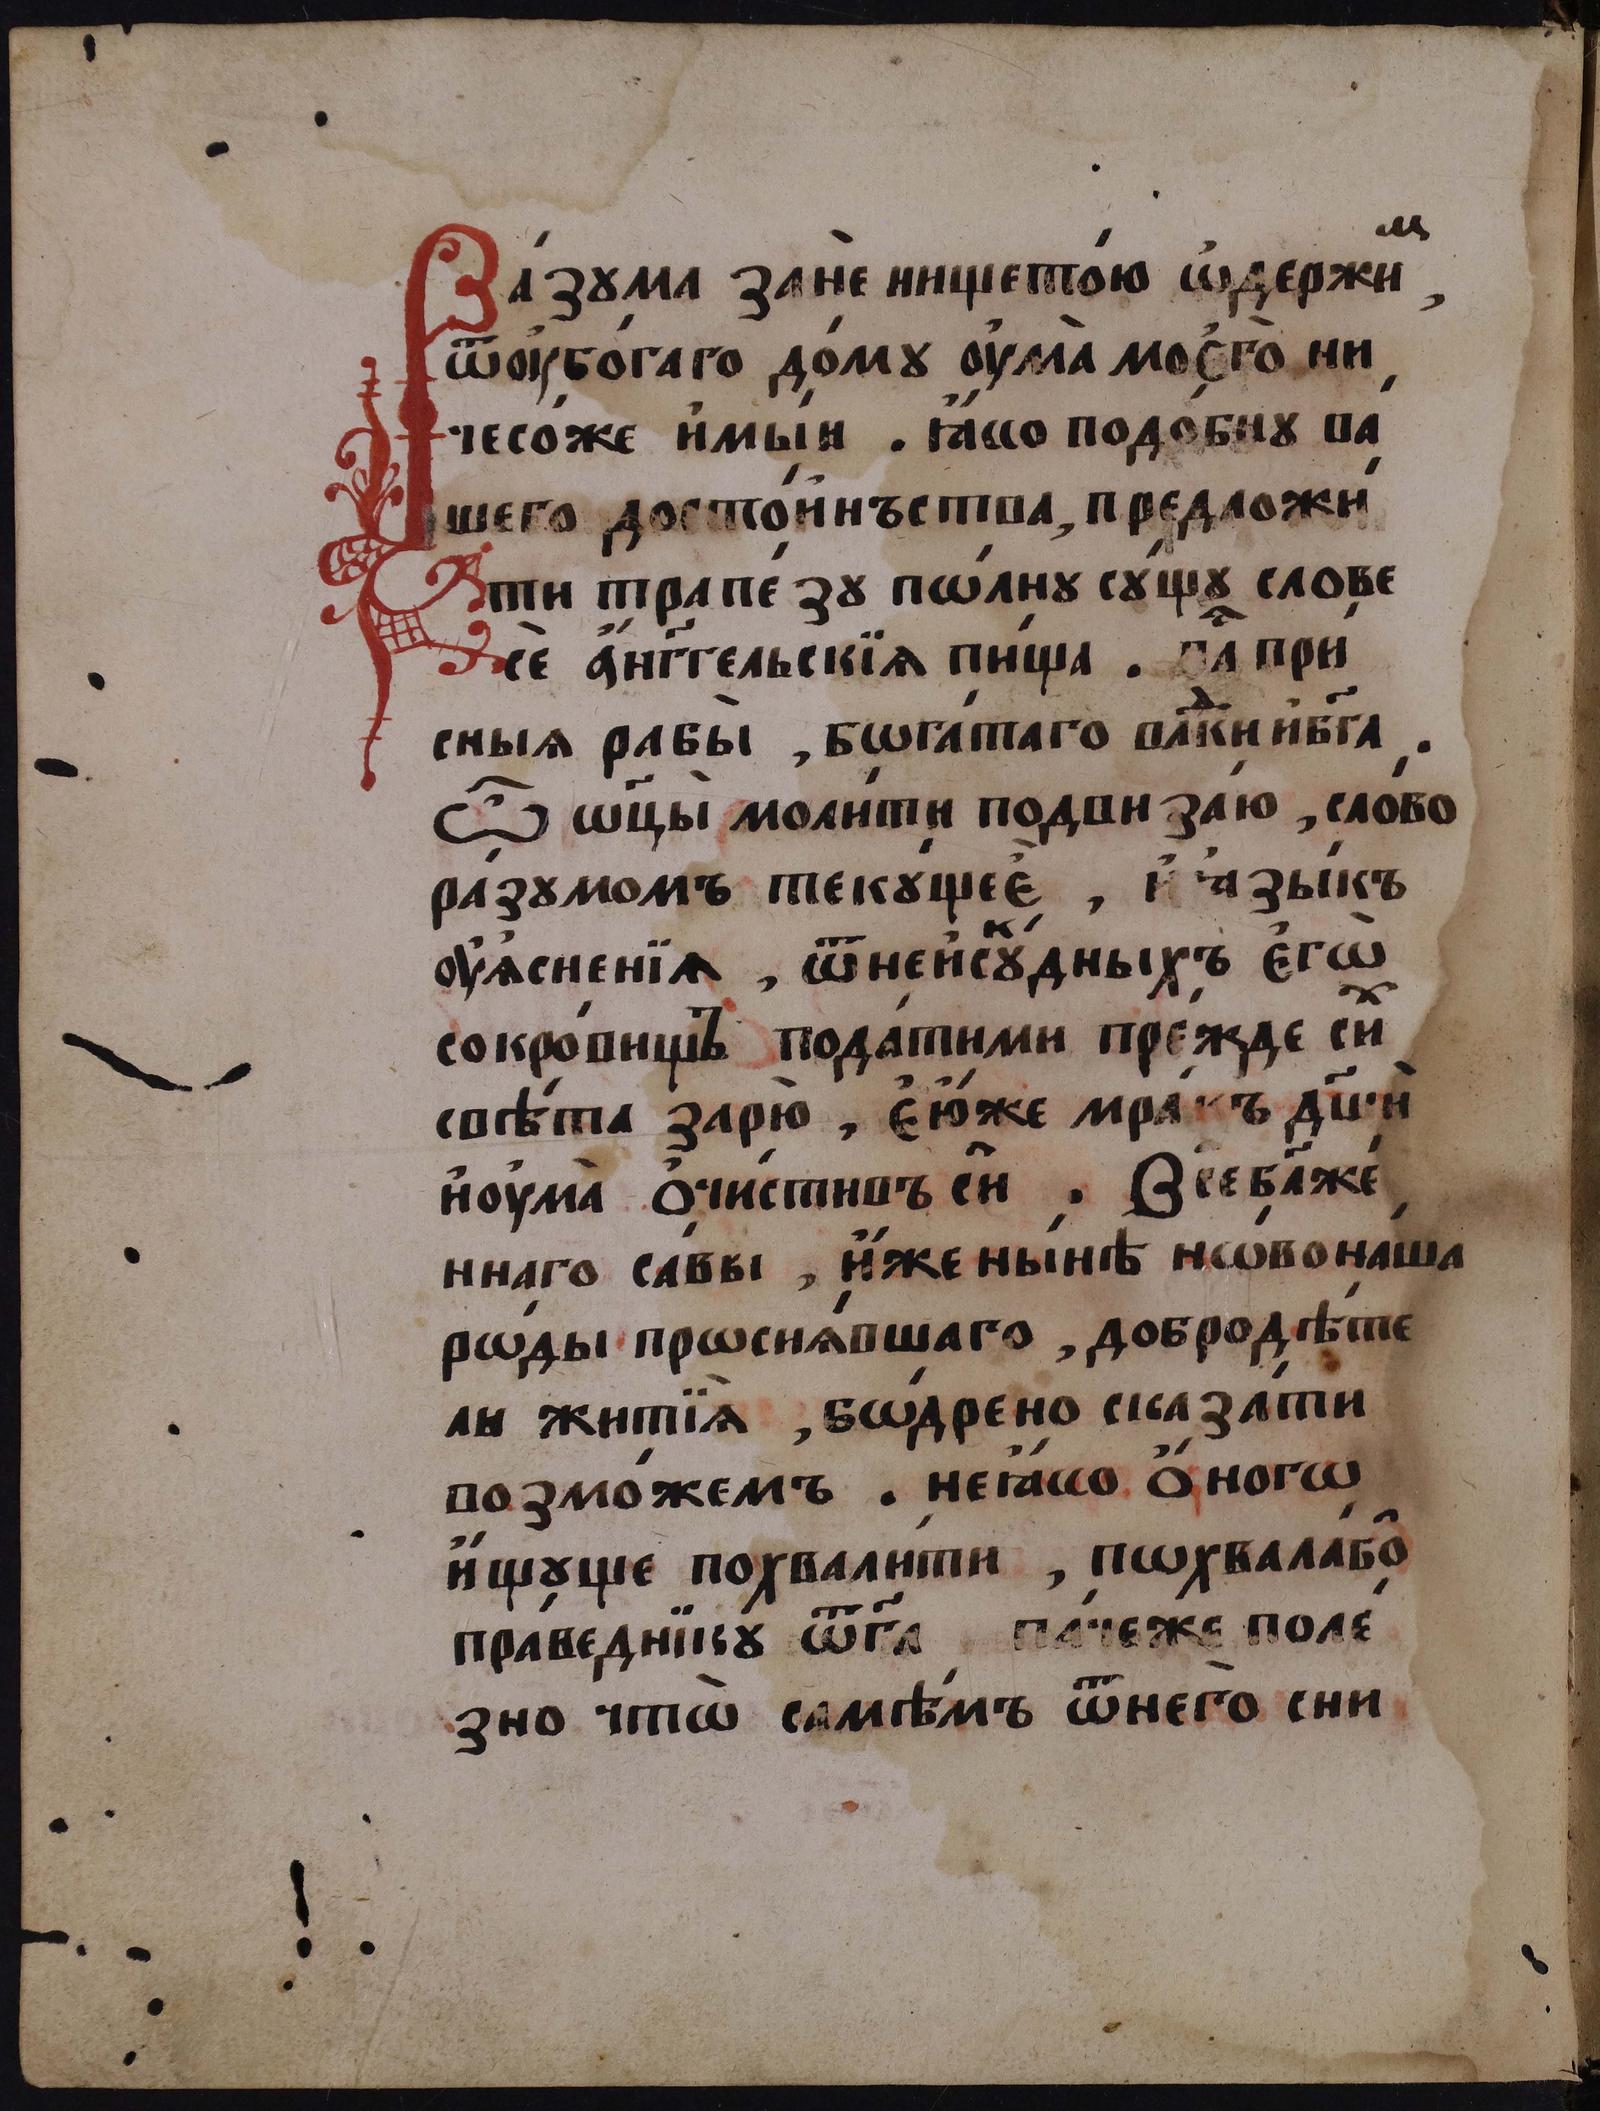 Ра́зꙋма занѐ нището́ю ѡ҆держи́м,
ѿꙋ҆бо́гаго до́мꙋ ᲂу҆ма̀ моегѡ̀ ни
чесо́же и҆мы́и . ꙗ҆́ко подо́бнꙋ ва́
шего досто́и҆нъства, предложи́
ти трапе́зꙋ пѡ́лнꙋ сꙋ́щꙋ слове
сѐ а҆́нг҃гельскїѧ пи́ща . ва̑ при́
сныѧ рабы̀ , бѡга́таго влⷣки и҆бг҃а .
Ѿ ѡ҆ц҃ы̀ моли́ти подви заю , сло́во
ра́зꙋмомъ текꙋ́щеѐ , и҆ ꙗ҆зы́къ
ᲂу҆ѧ҆сненїѧ , ѿнеи҆скꙋ́дныхъ є҆гѡ̀
сокро́вищъ пода́тими пре́жде си́х
свѣ́та зарю̀ , є҆ю҆́же мра́къ дш҃ѝ
и҆ᲂу҆ма̀ ѻ҆чи́стивъ сѝ . Всебл҃же́
ннаго са́вы , и҆́же ны́нѣ нѡ́вона́ша
рѡ́ды прѡсиѧ́вшаго , добродѣ́те
ли житїѧ̀ , бѡ́дрено сказа́ти
возмо́жемъ . неꙗ҆́ко ѻ҆́ногѡ
и҆́щꙋще похвали́ти , пѡхвала́бо̑
пра́ведникꙋ ѿг҃а па́чеже поле́
зно чтѡ̀ самѣ́мъ ѿнегѡ̀ сни